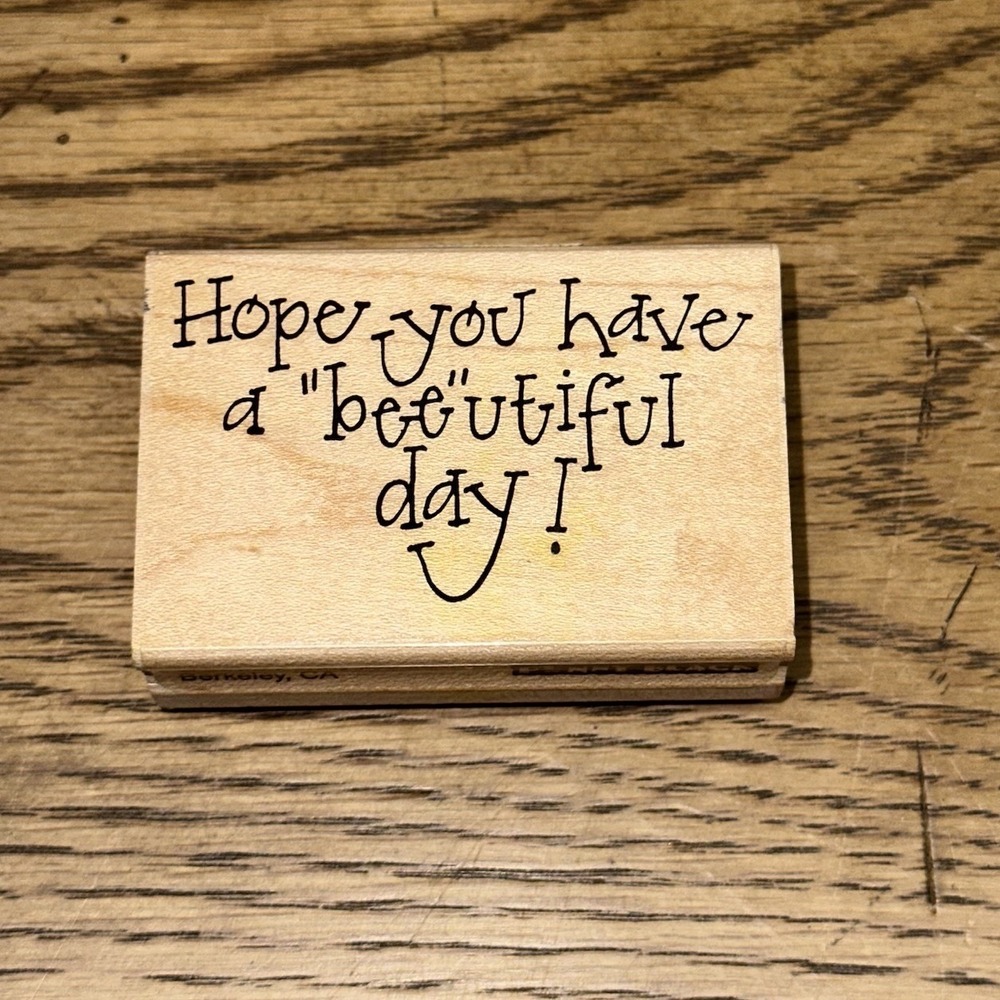 Hope you have
a "bee"utiful
day!
Berkeley, CA